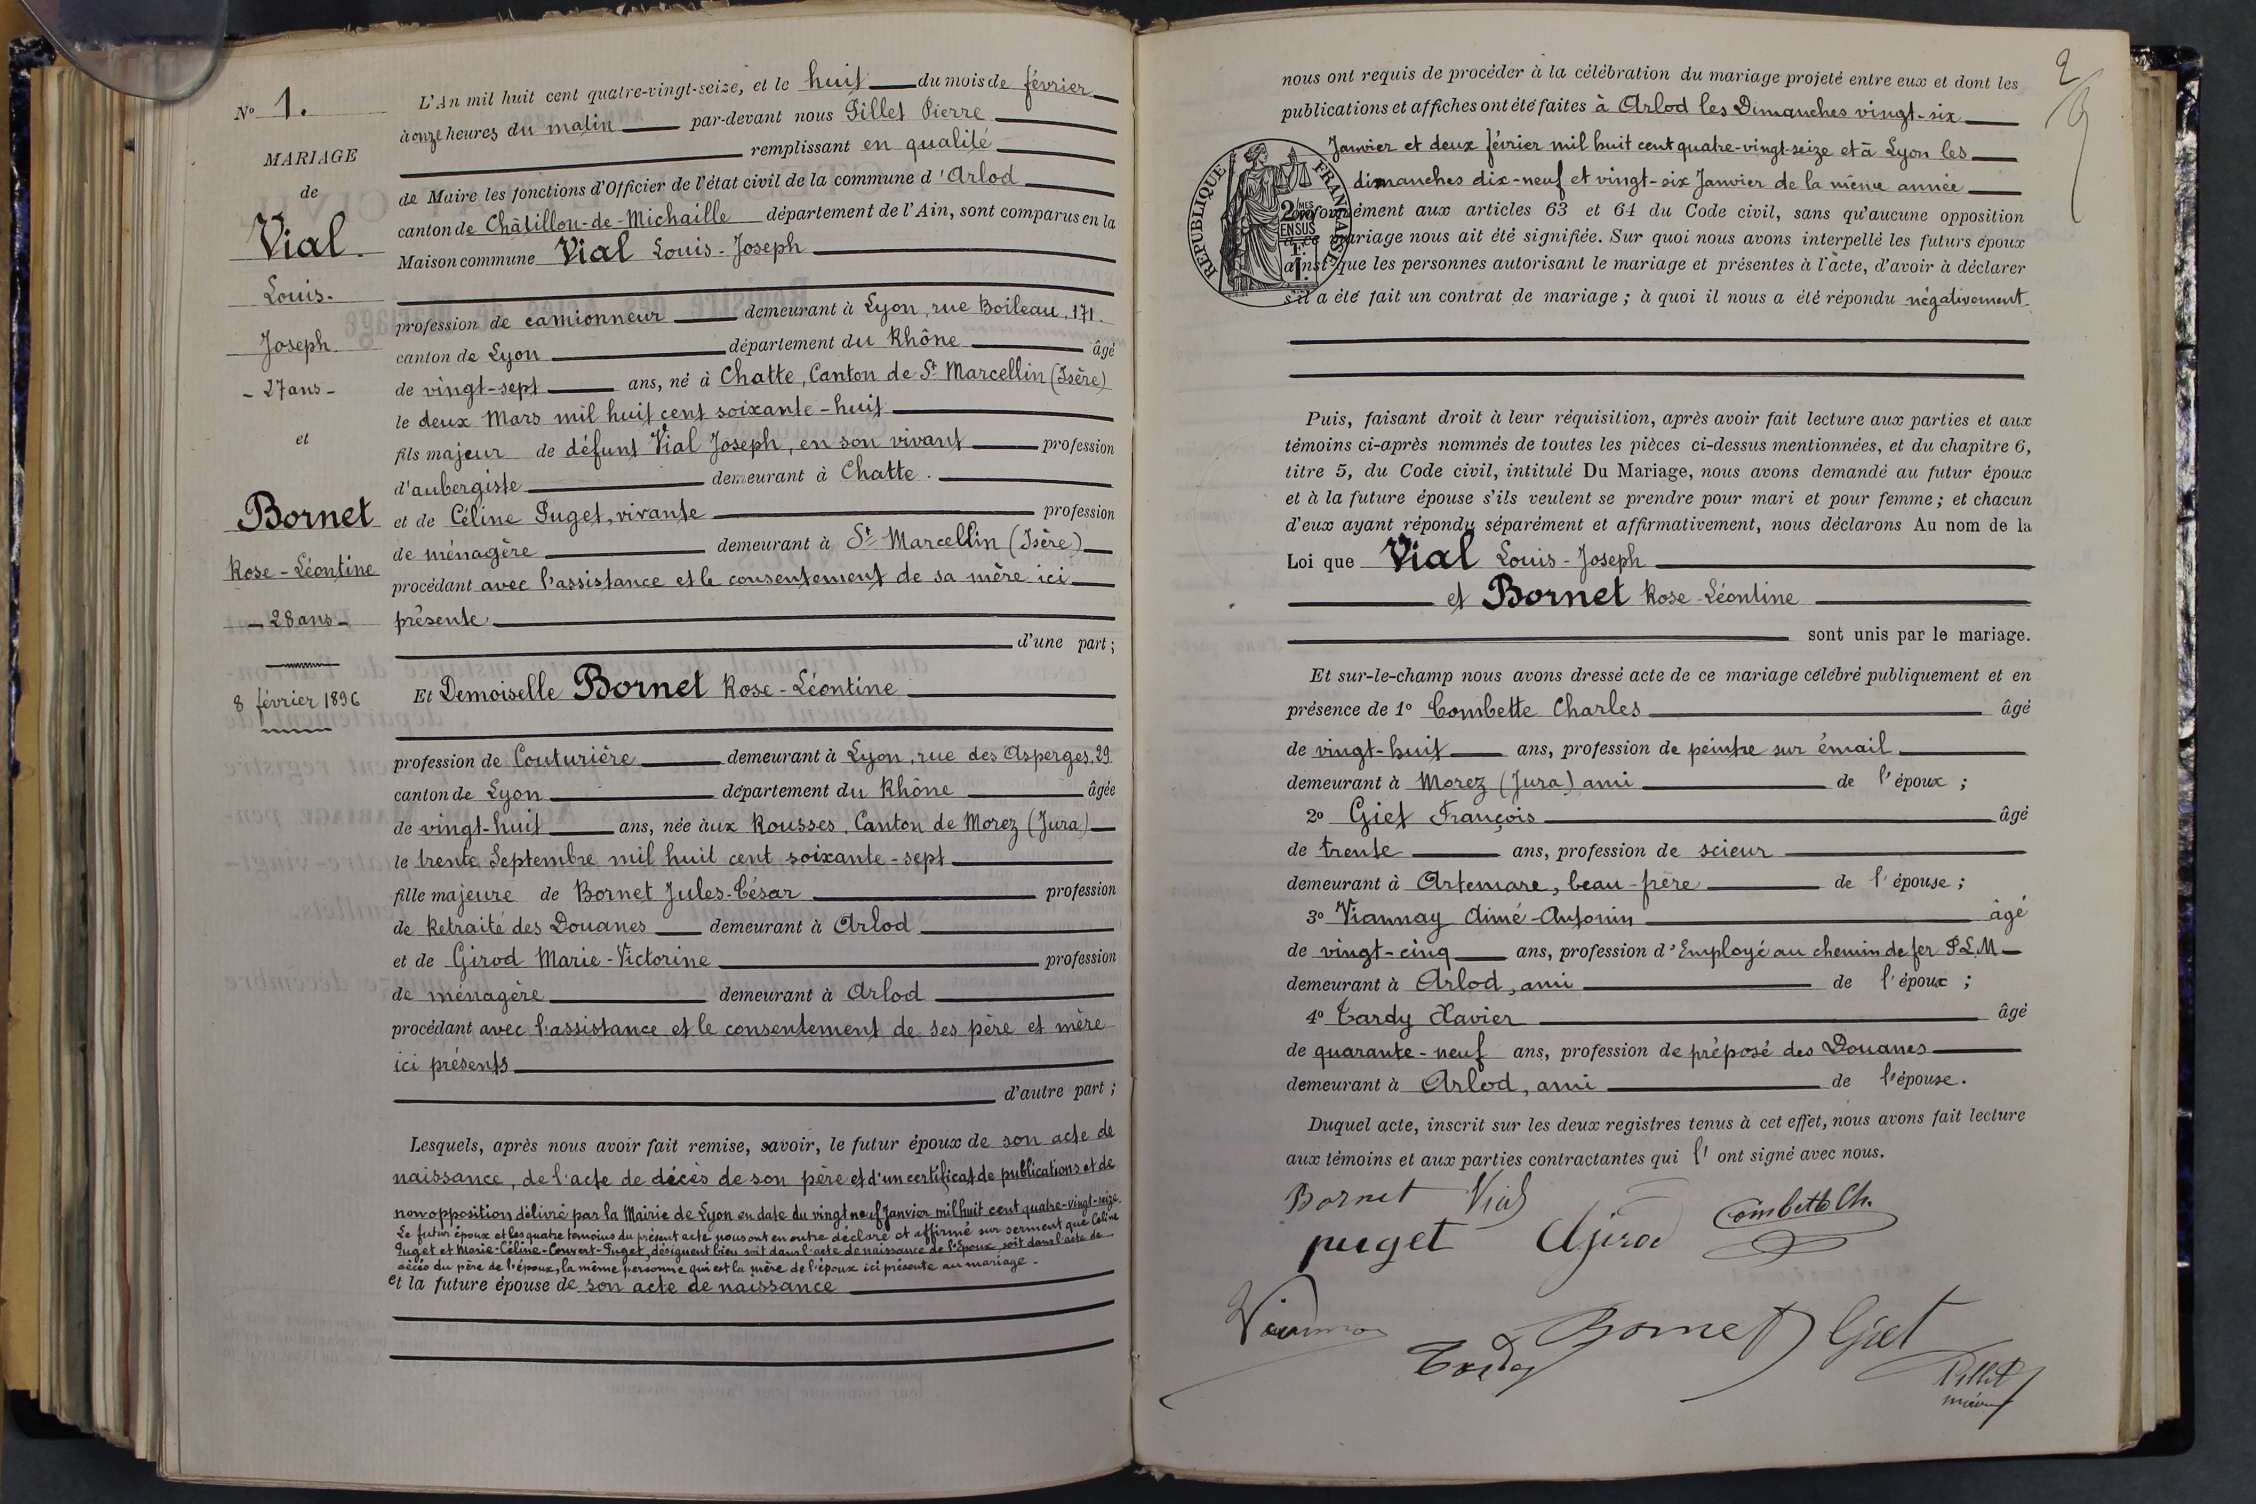 N° 1.
MARIAGE
de
Vial
Louis-
Joseph
- 27 ans -
et
Bornet
Rose-Léontine
- 28 ans -
8 février 1896
L'An mil huit cent quatre-vingt-seize, et le huit du mois de février
à onze heures du matin par-devant nous Pillet Pierre
remplissant en qualité
de Maire les fonctions d'Officier de l'état civil de la commune d'Arlod
canton de Châtillon-de-Michaille département de l'Ain, sont comparus en la
Maison commune Vial Louis-Joseph
profession de camionneur demeurant à Lyon, rue Boileau, 171.
canton de Lyon département du Rhône âgé
de vingt-sept ans, né à Chatte, Canton de St Marcellin (Isère)
le deux Mars mil huit cent soixante-huit
fils majeur de défunt Vial Joseph, en son vivant profession
d'aubergiste demeurant à Chatte.
et de Céline Puget, vivante profession
de ménagère demeurant à St Marcellin (Isère)
procédant avec l'assistance et le consentement de sa mère ici
présente
d'une part ;
Et Demoiselle Bornet Rose-Léontine
profession de Couturière demeurant à Lyon, rue des Asperges, 29
canton de Lyon département du Rhône âgée
de vingt-huit ans, née aux Rousses, Canton de Morez (Jura)
le trente Septembre mil huit cent soixante-sept
fille majeure de Bornet Jules-César profession
de Retraité des Douanes demeurant à Arlod
et de Girod Marie-Victorine profession
de ménagère demeurant à Arlod
procédant avec l'assistance et le consentement de ses père et mère
ici présents
d'autre part ;
Lesquels, après nous avoir fait remise, savoir, le futur époux de son acte de
naissance, de l'acte de décès de son père et d'un certificat de publications et de
non opposition délivré par la Mairie de Lyon en date du vingt neuf Janvier mil huit cent quatre-vingt-seize.
Le futur époux et les quatre témoins du présent acte nous ont en outre déclaré et affirmé sur serment que Céline
Puget et Marie-Céline-Couvert-Puget, désignent bien soit dans l'acte de naissance de l'Epoux, soit dans l'acte de
décès du père de l'époux, la même personne qui est la mère de l'époux ici présente au mariage.
et la future épouse de son acte de naissance
2
nous ont requis de procéder à la célébration du mariage projeté entre eux et dont les
publications et affiches ont été faites à Arlod les Dimanches vingt-six
Janvier et deux février mil huit cent quatre-vingt-seize et à Lyon les
dimanches dix-neuf et vingt-six Janvier de la même année
conformément aux articles 63 et 64 du Code civil, sans qu'aucune opposition
à ce mariage nous ait été signifiée. Sur quoi nous avons interpellé les futurs époux
ainsi que les personnes autorisant le mariage et présentes à l'acte, d'avoir à déclarer
s'il a été fait un contrat de mariage ; à quoi il nous a été répondu négativement
RÉPUBLIQUE FRANÇAISE
2 MES
EN SUS
Puis, faisant droit à leur réquisition, après avoir fait lecture aux parties et aux
témoins ci-après nommés de toutes les pièces ci-dessus mentionnées, et du chapitre 6,
titre 5, du Code civil, intitulé Du Mariage, nous avons demandé au futur époux
et à la future épouse s'ils veulent se prendre pour mari et pour femme ; et chacun
d'eux ayant répondu séparément et affirmativement, nous déclarons Au nom de la
Loi que Vial Louis-Joseph
et Bornet Rose-Léontine
sont unis par le mariage.
Et sur-le-champ nous avons dressé acte de ce mariage célébré publiquement et en
présence de 1° Combette Charles âgé
de vingt-huit ans, profession de peintre sur émail
demeurant à Morez (Jura) ami de l'époux ;
2° Giet François âgé
de trente ans, profession de scieur
demeurant à Artemare, beau-frère de l'épouse ;
3° Viannay Aimé-Antonin âgé
de vingt-cinq ans, profession d'Employé au chemin de fer P.L.M
demeurant à Arlod, ami de l'époux ;
4° Tardy Xavier âgé
de quarante-neuf ans, profession de préposé des Douanes
demeurant à Arlod, ami de l'épouse.
Duquel acte, inscrit sur les deux registres tenus à cet effet, nous avons fait lecture
aux témoins et aux parties contractantes qui l' ont signé avec nous.
Bornet Vial
puget Girod Combette Ch.
Bornet Giet
Tardy
Pillet